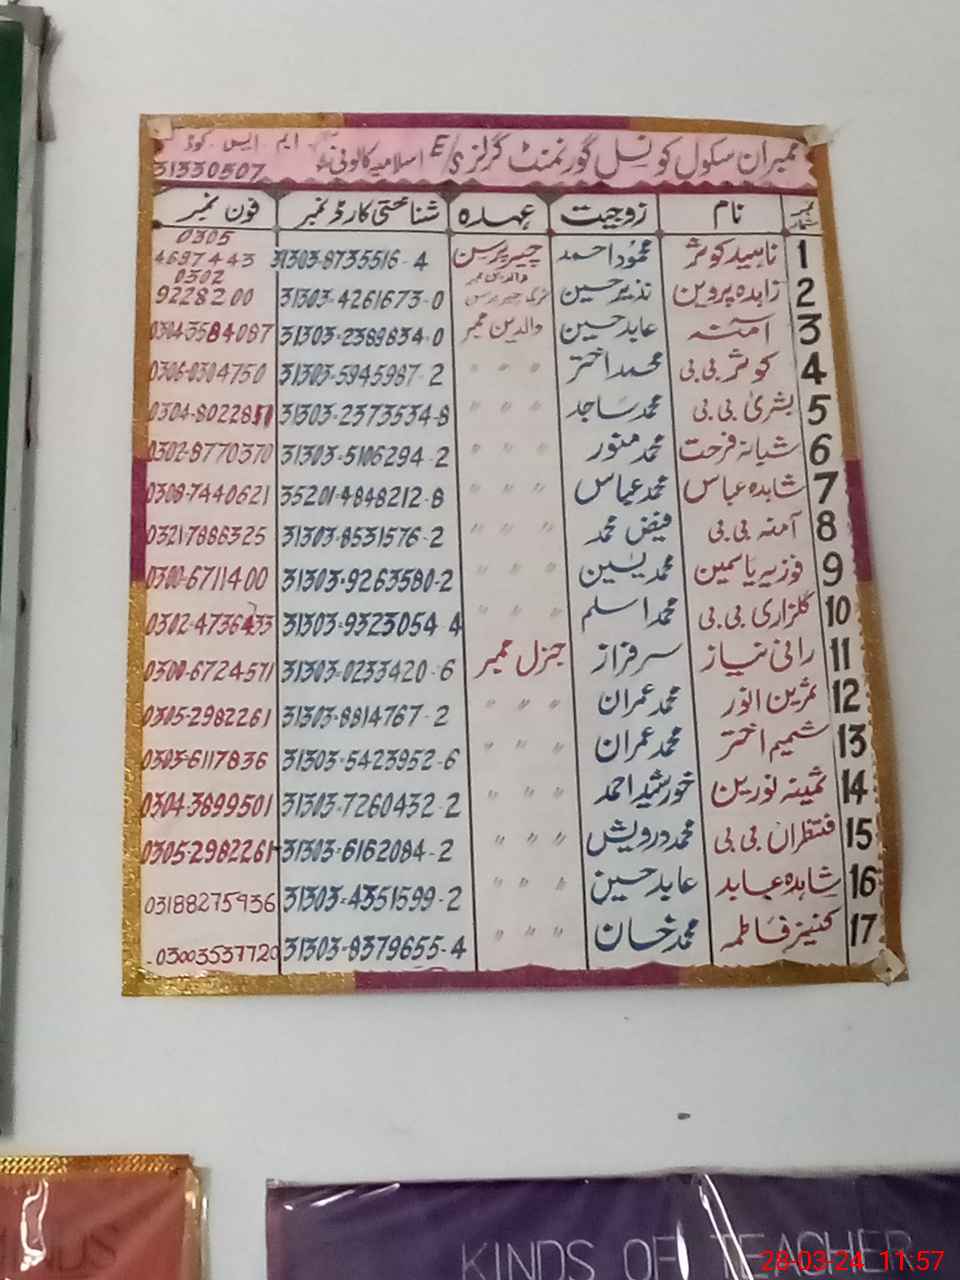 ممبران سکول کونسل گورنمنٹ گرلز E/ اسلامیہ کالونی
ایم ایس کوڈ
31330507
نمبر شمار نام زوجیت عہدہ شناختی کارڈ نمبر فون نمبر
1 ناہید کوثر محمود احمد چیئرپرسن 31303-8735516-4 0305 4697443
2 زاہدہ پروین نذیر حسین والدین ممبر 31303-4261673-0 0302 9228200
3 آمنہ عابد حسین والدین ممبر 31303-2389834-0 0304-3584087
4 کوثر بی بی محمد اختر " " " 31303-5945987-2 0306-0304750
5 بشریٰ بی بی محمد ساجد " " " 31303-2373534-8
6 شبانہ فرحت محمد منور " " " 31303-5106294-2 0302-8770370
7 شاہدہ عباس محمد عباس " " " 35201-4848212-8 0308-7440621
8 آمنہ بی بی فیض محمد " " " 31303-8531576-2 0321-7886325
9 فوزیہ یاسمین محمد یٰسین " " " 31303-9263580-2 0300-6711400
10 گلزاری بی بی محمد اسلم " " " 31303-9323054-4 0302-4736433
11 رانی نیاز سرفراز جنرل ممبر 31303-0233420-6 0300-6724571
12 ثمرین انور محمد عمران " " " 31303-8814767-2 0305-2982261
13 شمیم اختر محمد عمران " " " 31303-5423952-6 0303-6117836
14 ثمینہ نورین خورشید احمد " " " 31303-7260432-2 0304-3899501
15 منتظراں بی بی محمد درویش " " " 31303-6162084-2 0305-2982261
16 شاہدہ عابد عابد حسین " " " 31303-4351599-2 03188275936
17 کنیز فاطمہ محمد خان " " " 31303-8379655-4 03003537720
KINDS OF TEACHER
28-03-24 11:57